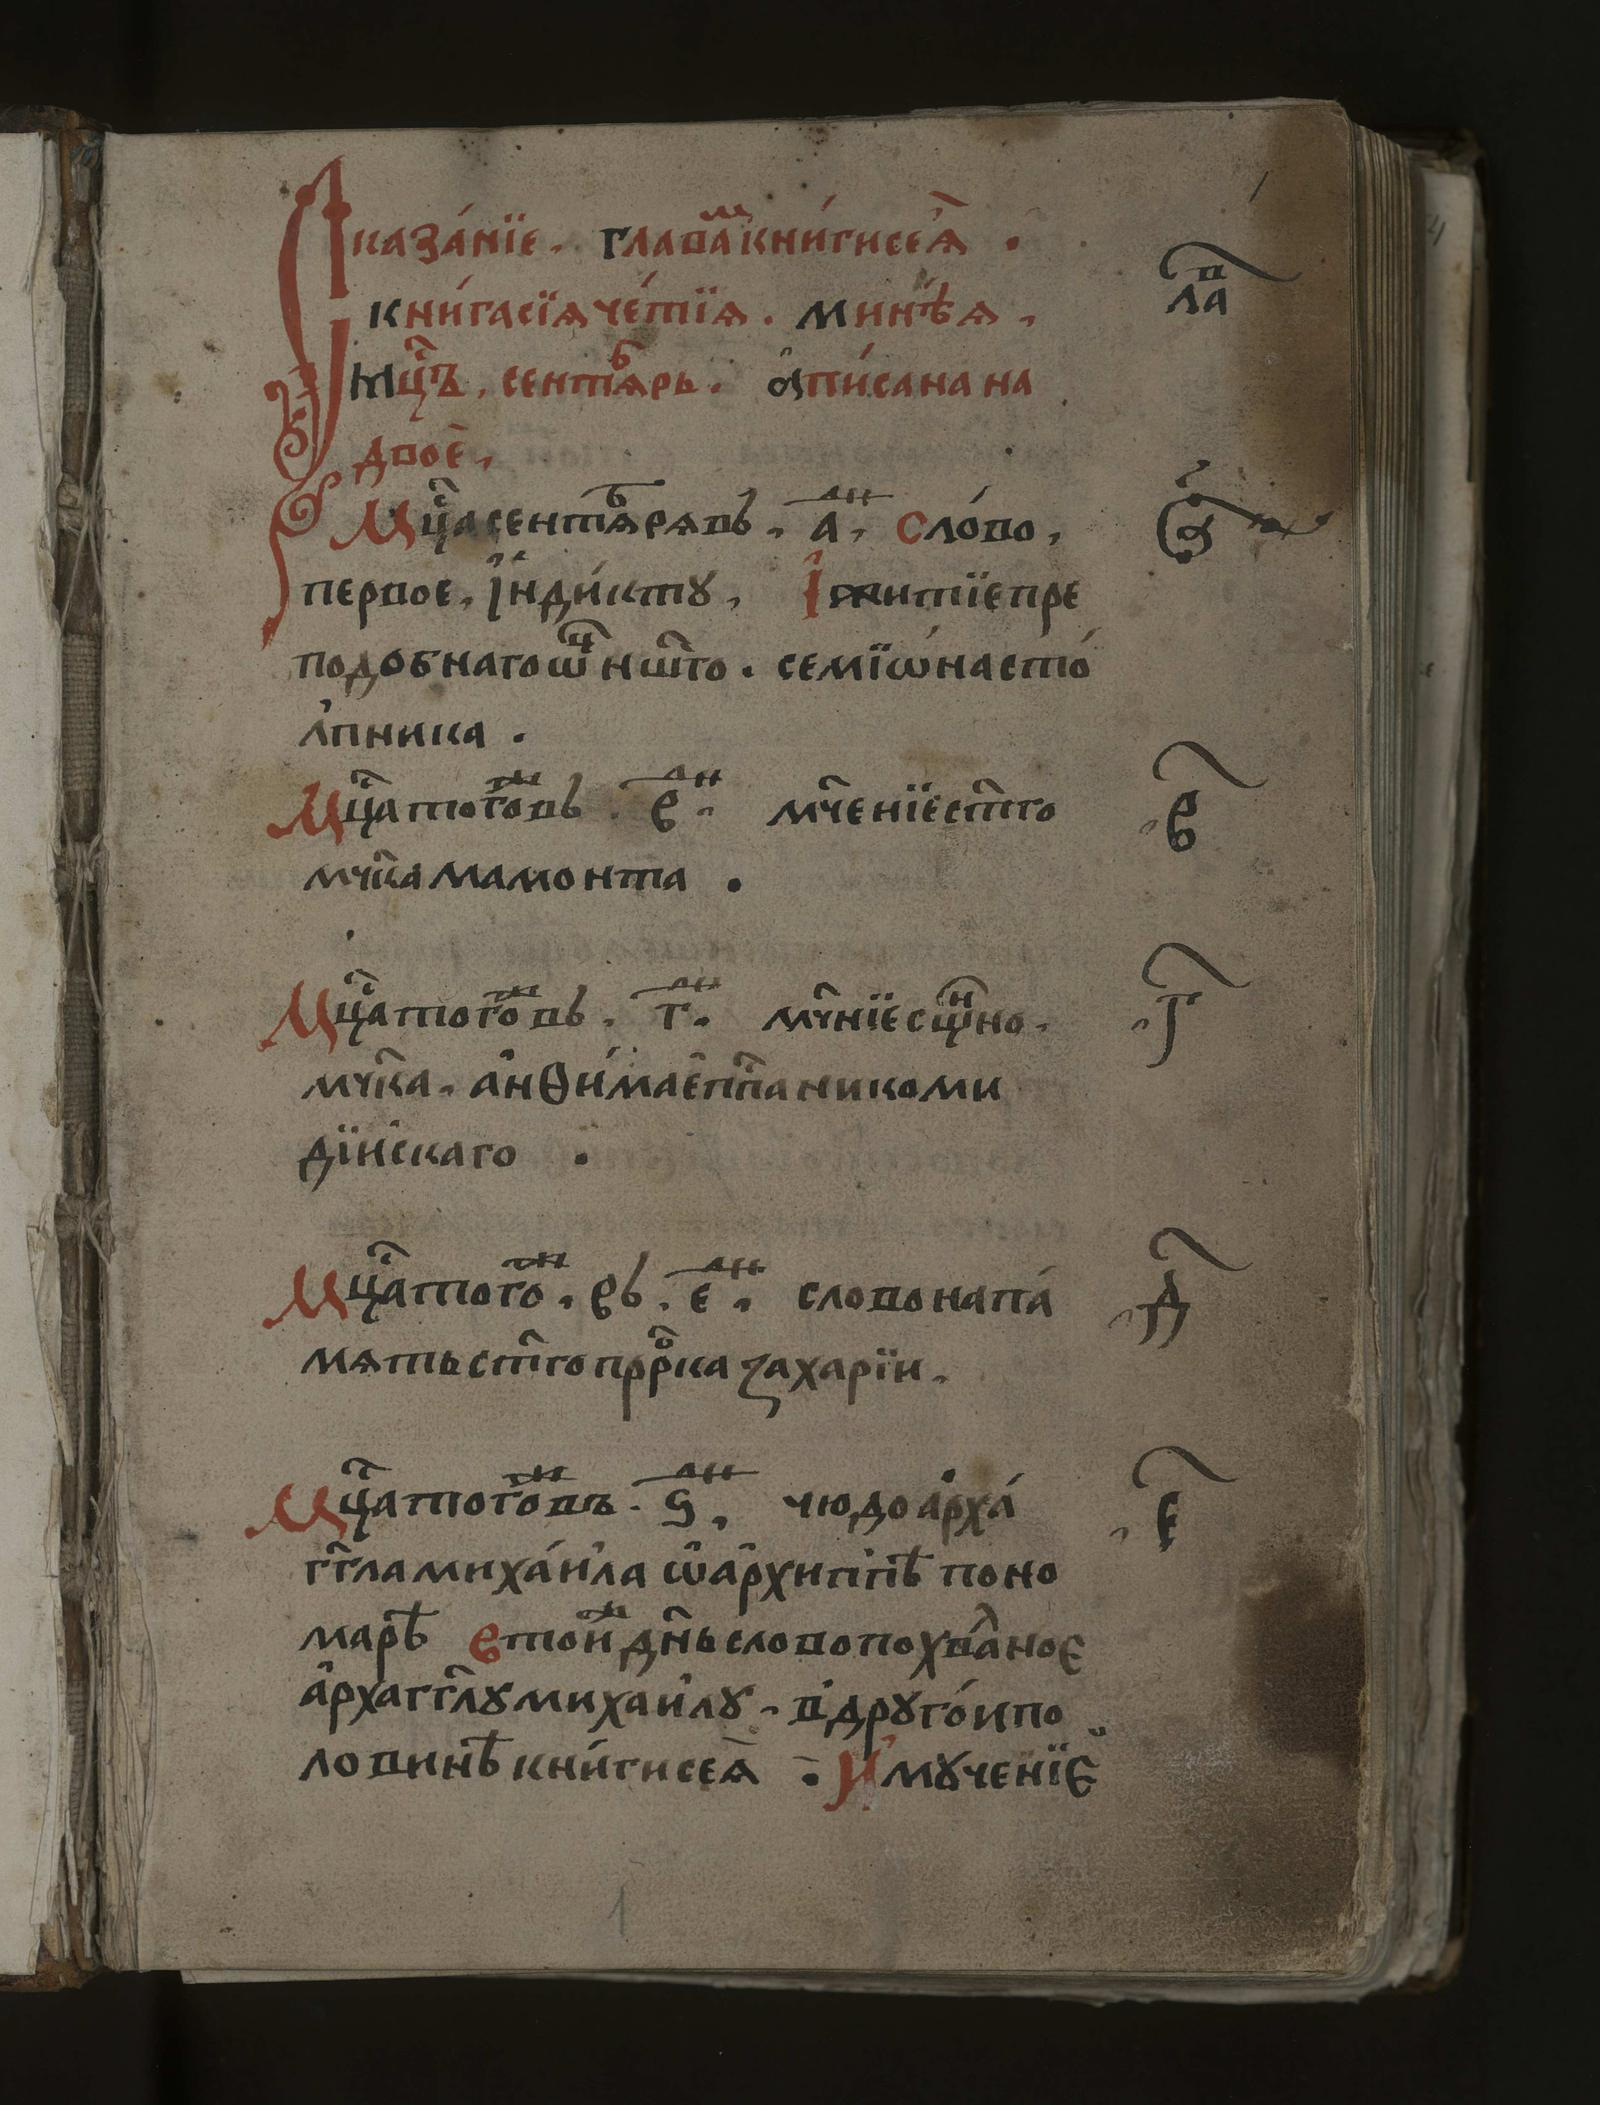 Сказа́нїе. глава̑м кни́ги сеѧ̀ .
кни́га сїѧ че́тїѧ . минѣѧ . гла́в
мц҇ъ . сентѧ́брь . ѹ҆пи́сана на
двоѐ .
Мц҇а сентѧбрѧ въ . а҃ . дн сло́во . а҃
первое . і҆нди́кту . І житїе пре
подобнаго ѿц҃ нш҃го . семїѡ́на сто́
л̾пника .
Мц҇а тогож въ . в҃ . дн мч҃енїе ст҃го в҃
мчн҃ка мамонта .
Мц҇а тогож въ . г҃ . дн мч҃нїе сщ҃нно . г҃
мчн҃ка . а҆нѳи́ма е҆пп҇а никоми
дїи́скаго .
Мц҇а тогож . въ . е҃ . дн слово на па́ д҃
мѧть ст҃го прр҇ока захарїи .
Мц҇а тогож въ . ѕ҃ . дн чюдо а҆рха́ е҃
гг҃ла миха́и҆ла ѡ҆ а҆рхиппѣ поно
марѣ в той ж дн҃ь слово похва́лное
а҆рхагг҃лу михаи҆лу . в̾ друго́и по
ловинѣ кни́ги сеѧ̀ : И҆ мученїе
1
1